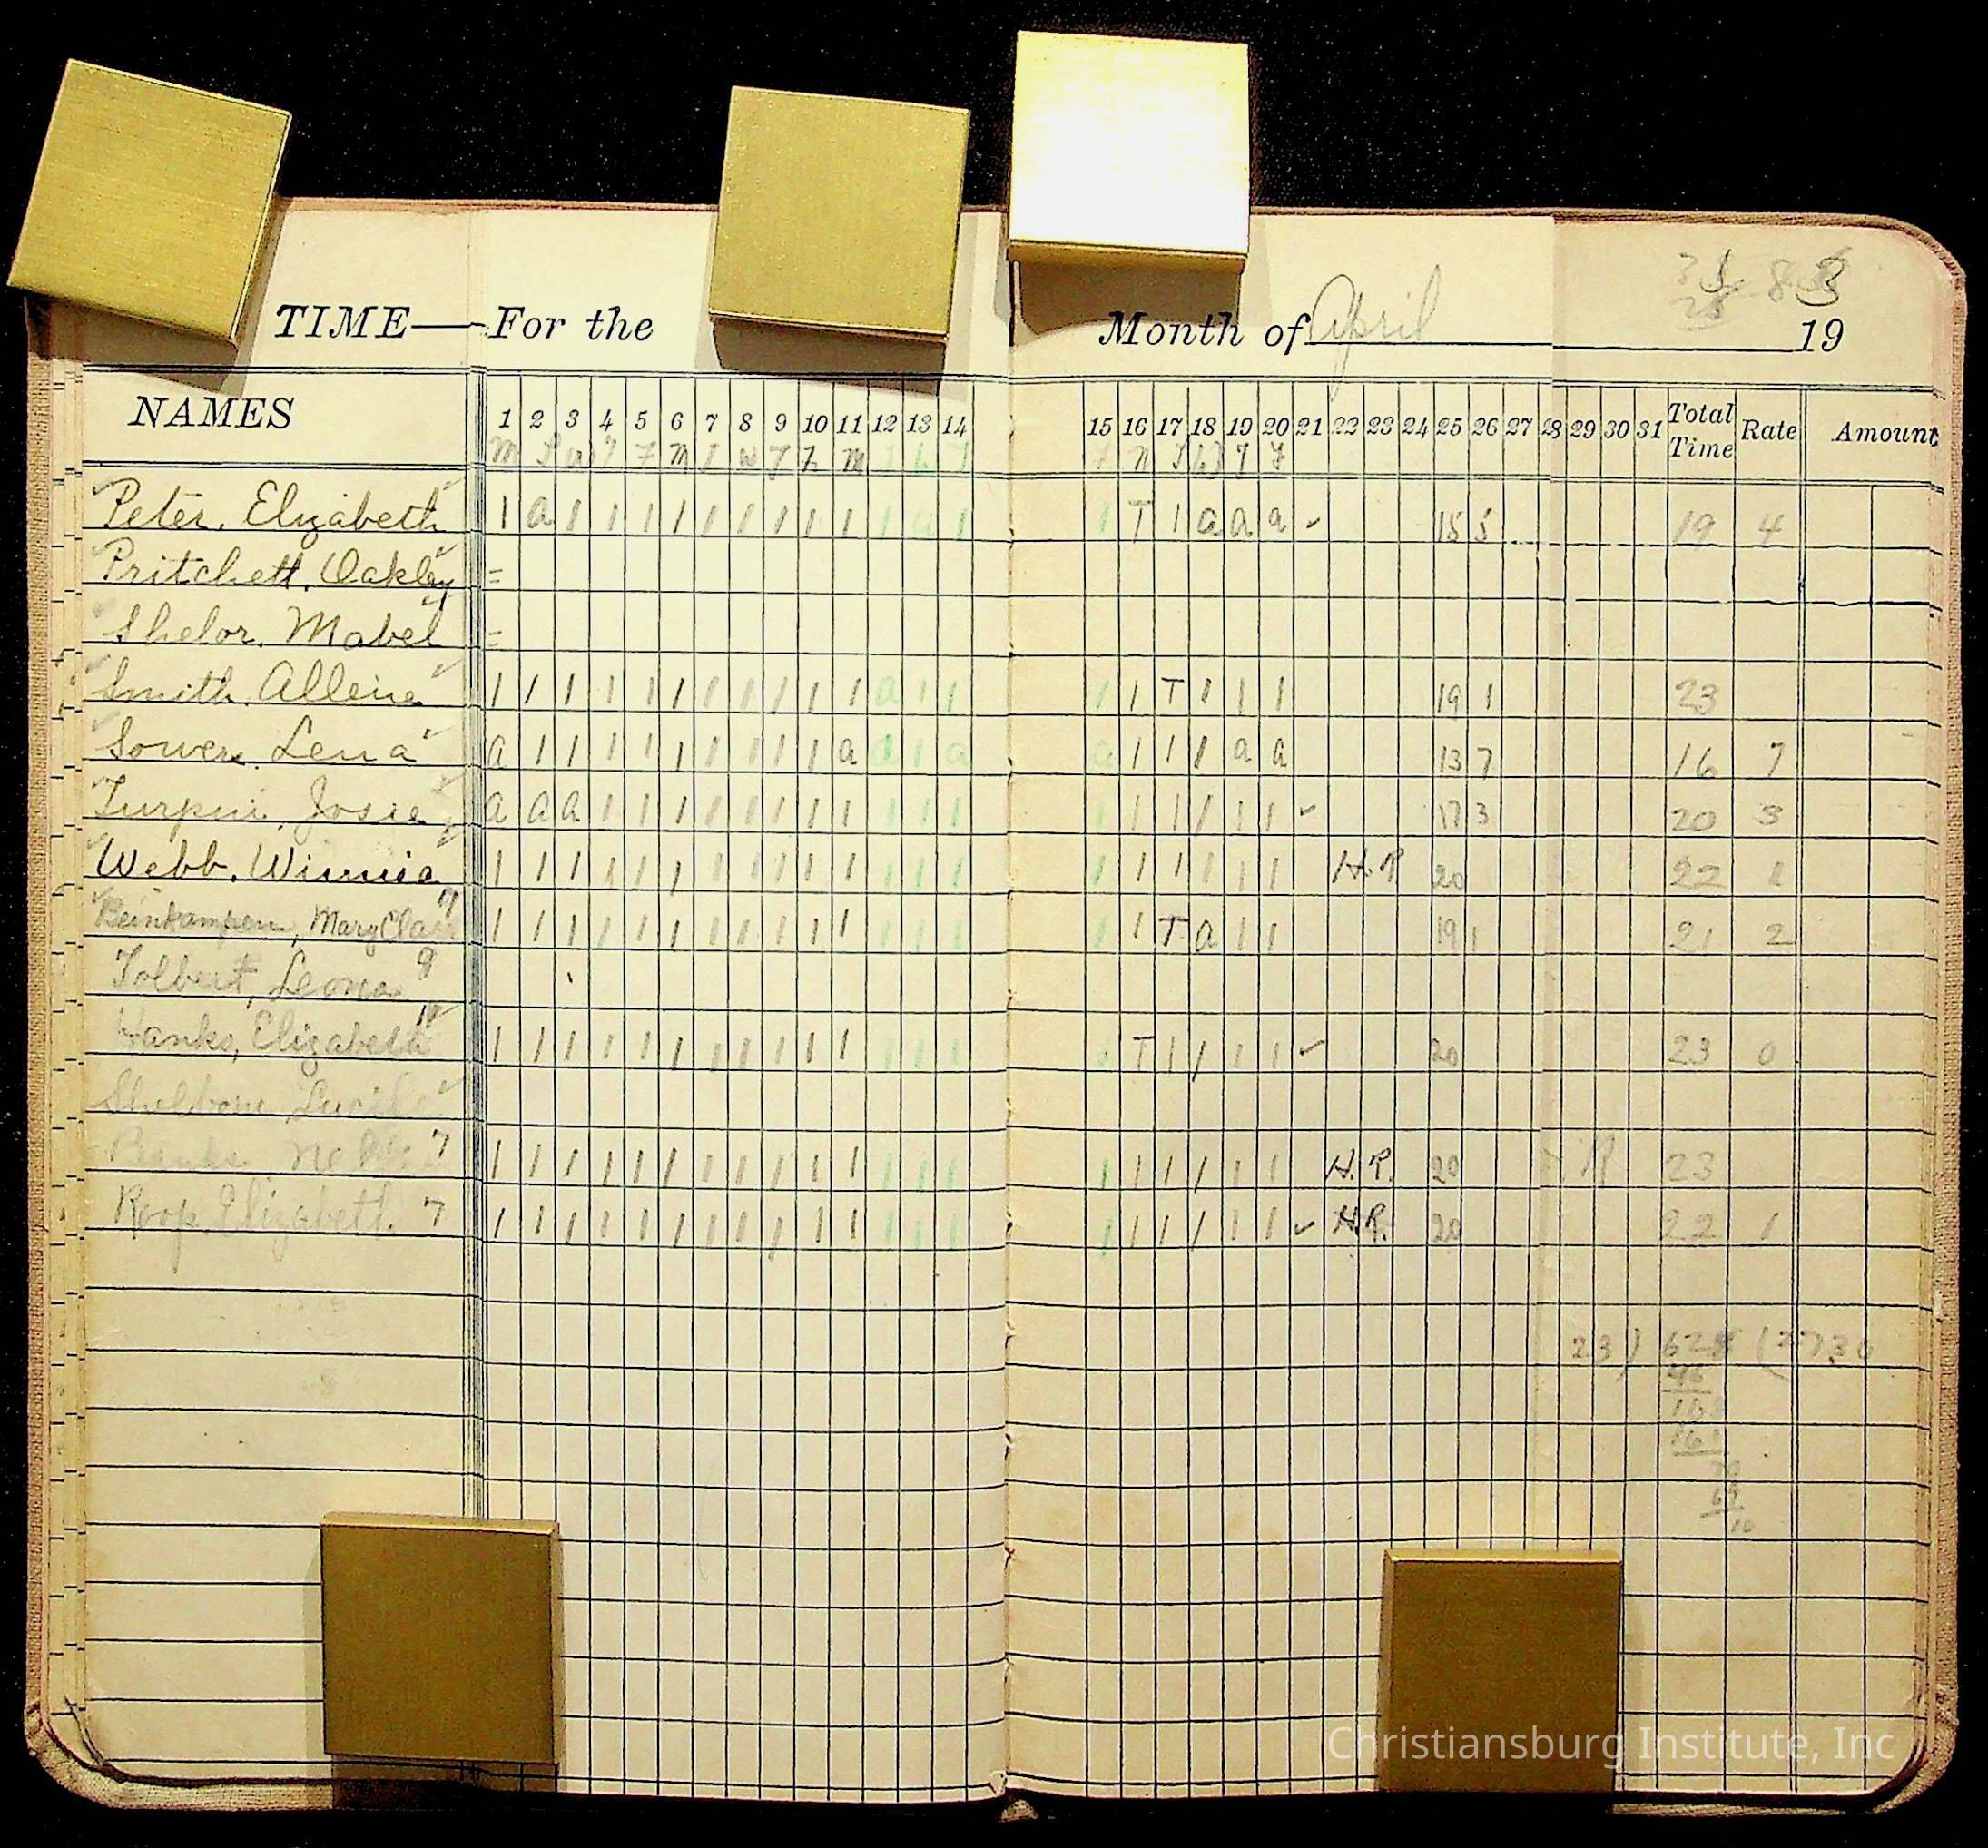 TIME — For the Month of April 19
NAMES 1 2 3 4 5 6 7 8 9 10 11 12 13 14 15 16 17 18 19 20 21 22 23 24 25 26 27 28 29 30 31 Total Time Rate Amount
M T W T F M T W T F M T W T F M T W T F
Peter, Elizabeth 1 a 1 1 1 1 1 1 1 1 1 1 a 1 1 T 1 a a a ✓ 15 5 19 4
Pritchett, Oakley =
Shelor, Mabel =
Smith, Alleine 1 1 1 1 1 1 1 1 1 1 1 a 1 1 1 1 T 1 1 1 19 1 23
Sower, Lena a 1 1 1 1 1 1 1 1 1 a a 1 a a 1 1 1 a a 13 7 16 7
Turpin, Josie a a a 1 1 1 1 1 1 1 1 1 1 1 1 1 1 1 1 1 ✓ 17 3 20 3
Webb, Winnie 1 1 1 1 1 1 1 1 1 1 1 1 1 1 1 1 1 1 1 1 H.R 20 22 1
Beinkampen, Mary Clair 7 1 1 1 1 1 1 1 1 1 1 1 1 1 1 1 1 T a 1 1 19 1 21 2
Tolbert, Leona 9
Hanks, Elizabeth 1 1 1 1 1 1 1 1 1 1 1 1 1 1 1 T 1 1 1 1 ✓ 20 23 0
Lucile
7 1 1 1 1 1 1 1 1 1 1 1 1 1 1 1 1 1 1 1 1 H.R. 20 R 23
Roop, Elizabeth 7 1 1 1 1 1 1 1 1 1 1 1 1 1 1 1 1 1 1 1 1 ✓ H.R. 20 22 1
23) 628 (2730
46
161
69
10
Christiansburg Institute, Inc